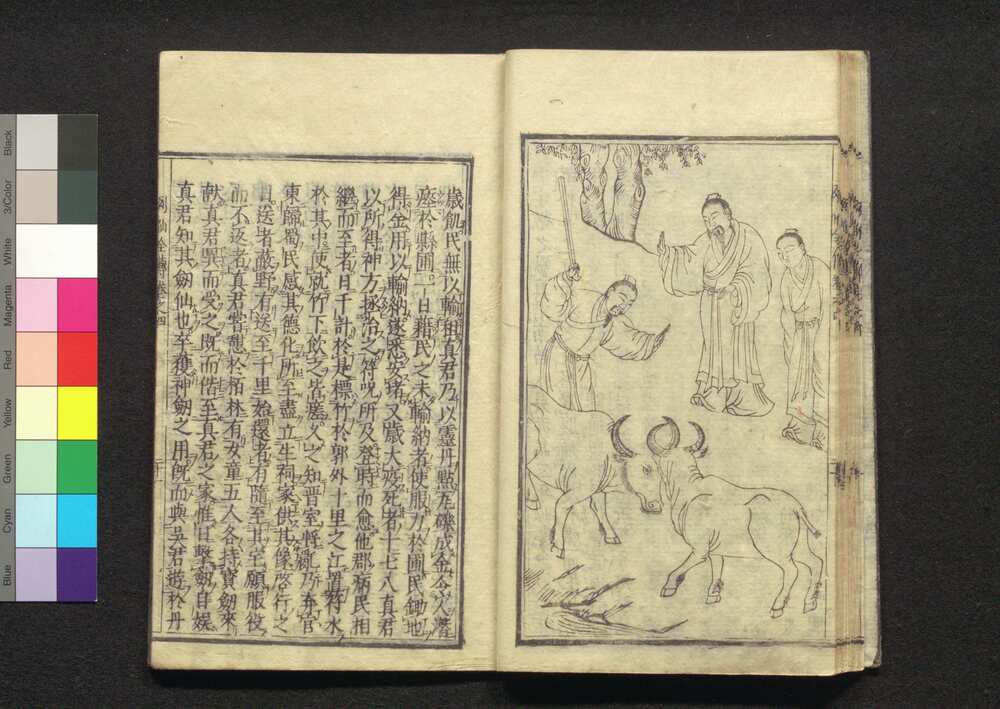 歲飢民無以輸租真君乃以靈丹點瓦礫成金令人潛
瘞於縣圃一日藉民之未輸納者使服力於圃民鋤地
得金用以輸納遂悉安堵又歲大疫死者十七八真君
以所得神方拯治之符呪所及登時而愈他郡病民相
繼而至者日千計於是標竹於郭外十里之江置符水
於其中使就竹下飲之皆瘥久之知晉室將亂乃弃官
東歸蜀民感其德化所至盡立生祠家供其像啓行之
日送者蔽野有送至千里始還者有隨至其宅願服役
而不返者真君嘗憩於栢林有女童五人各持寶劒來
献真君異而受之既而偕至真君之家惟日擊劒自娛
真君知其劒仙也卒獲神劒之用既而與吳君遊於丹
列仙全傳卷之四
Black
3/Color
White
Magenta
Red
Yellow
Green
Cyan
Blue